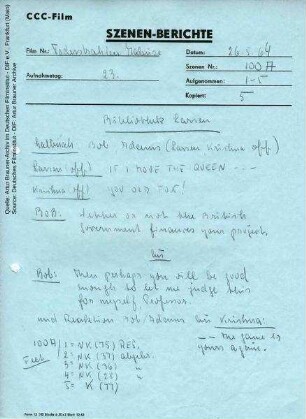 CCC-Film
SZENEN-BERICHTE
Film Nr. Todesstrahlen Mabuse
Datum: 26.5.64
Szenen Nr. 100A
Aufnahmetag: 23.
Aufgenommen: 1-5
Kopiert: 5
Bibliothek Larsen
Halbnah Bob Adams (Larsen Krishna off.)
Larsen off) IF I MOVE THE QUEEN - - -
Krishna off) YOU OLD FOX!
BOB: whether or not the British
government finances your project,
Bob: Then perhaps you will be good
enough to let me judge this
for myself Professor.
und Reaktion Bob Adams bis Krishna:
- - the game is
yours again.
100A 1= NK (75) RES.
2= NK (37) abgebr.
3= NK (36) "
4= NK (28) "
5= K (77)
Quelle: Artur Brauner-Archiv im Deutschen Filminstitut - DIF e.V., Frankfurt (Main)
Source: Deutsches Filminstitut - DIF: Artur Brauner Archive